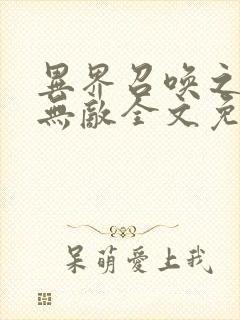 異界召喚之
無敵全文免
呆萌愛上我